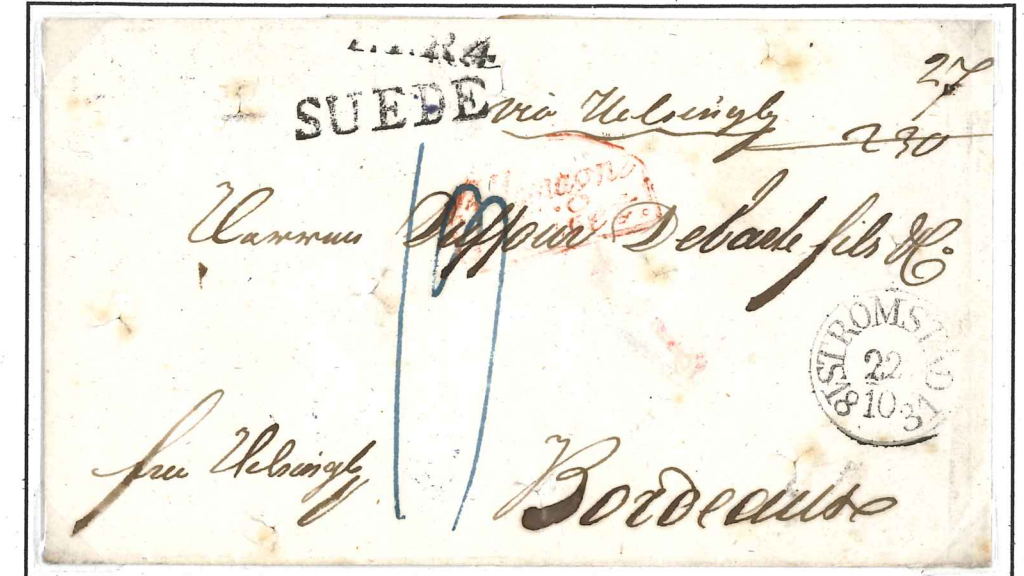 SUEDE
27
via Helsingb
230
Herrren Duffour Debacle fils & C:
STRÖMSTAD
22
10
1831
frei Helsingb
Bordeaux